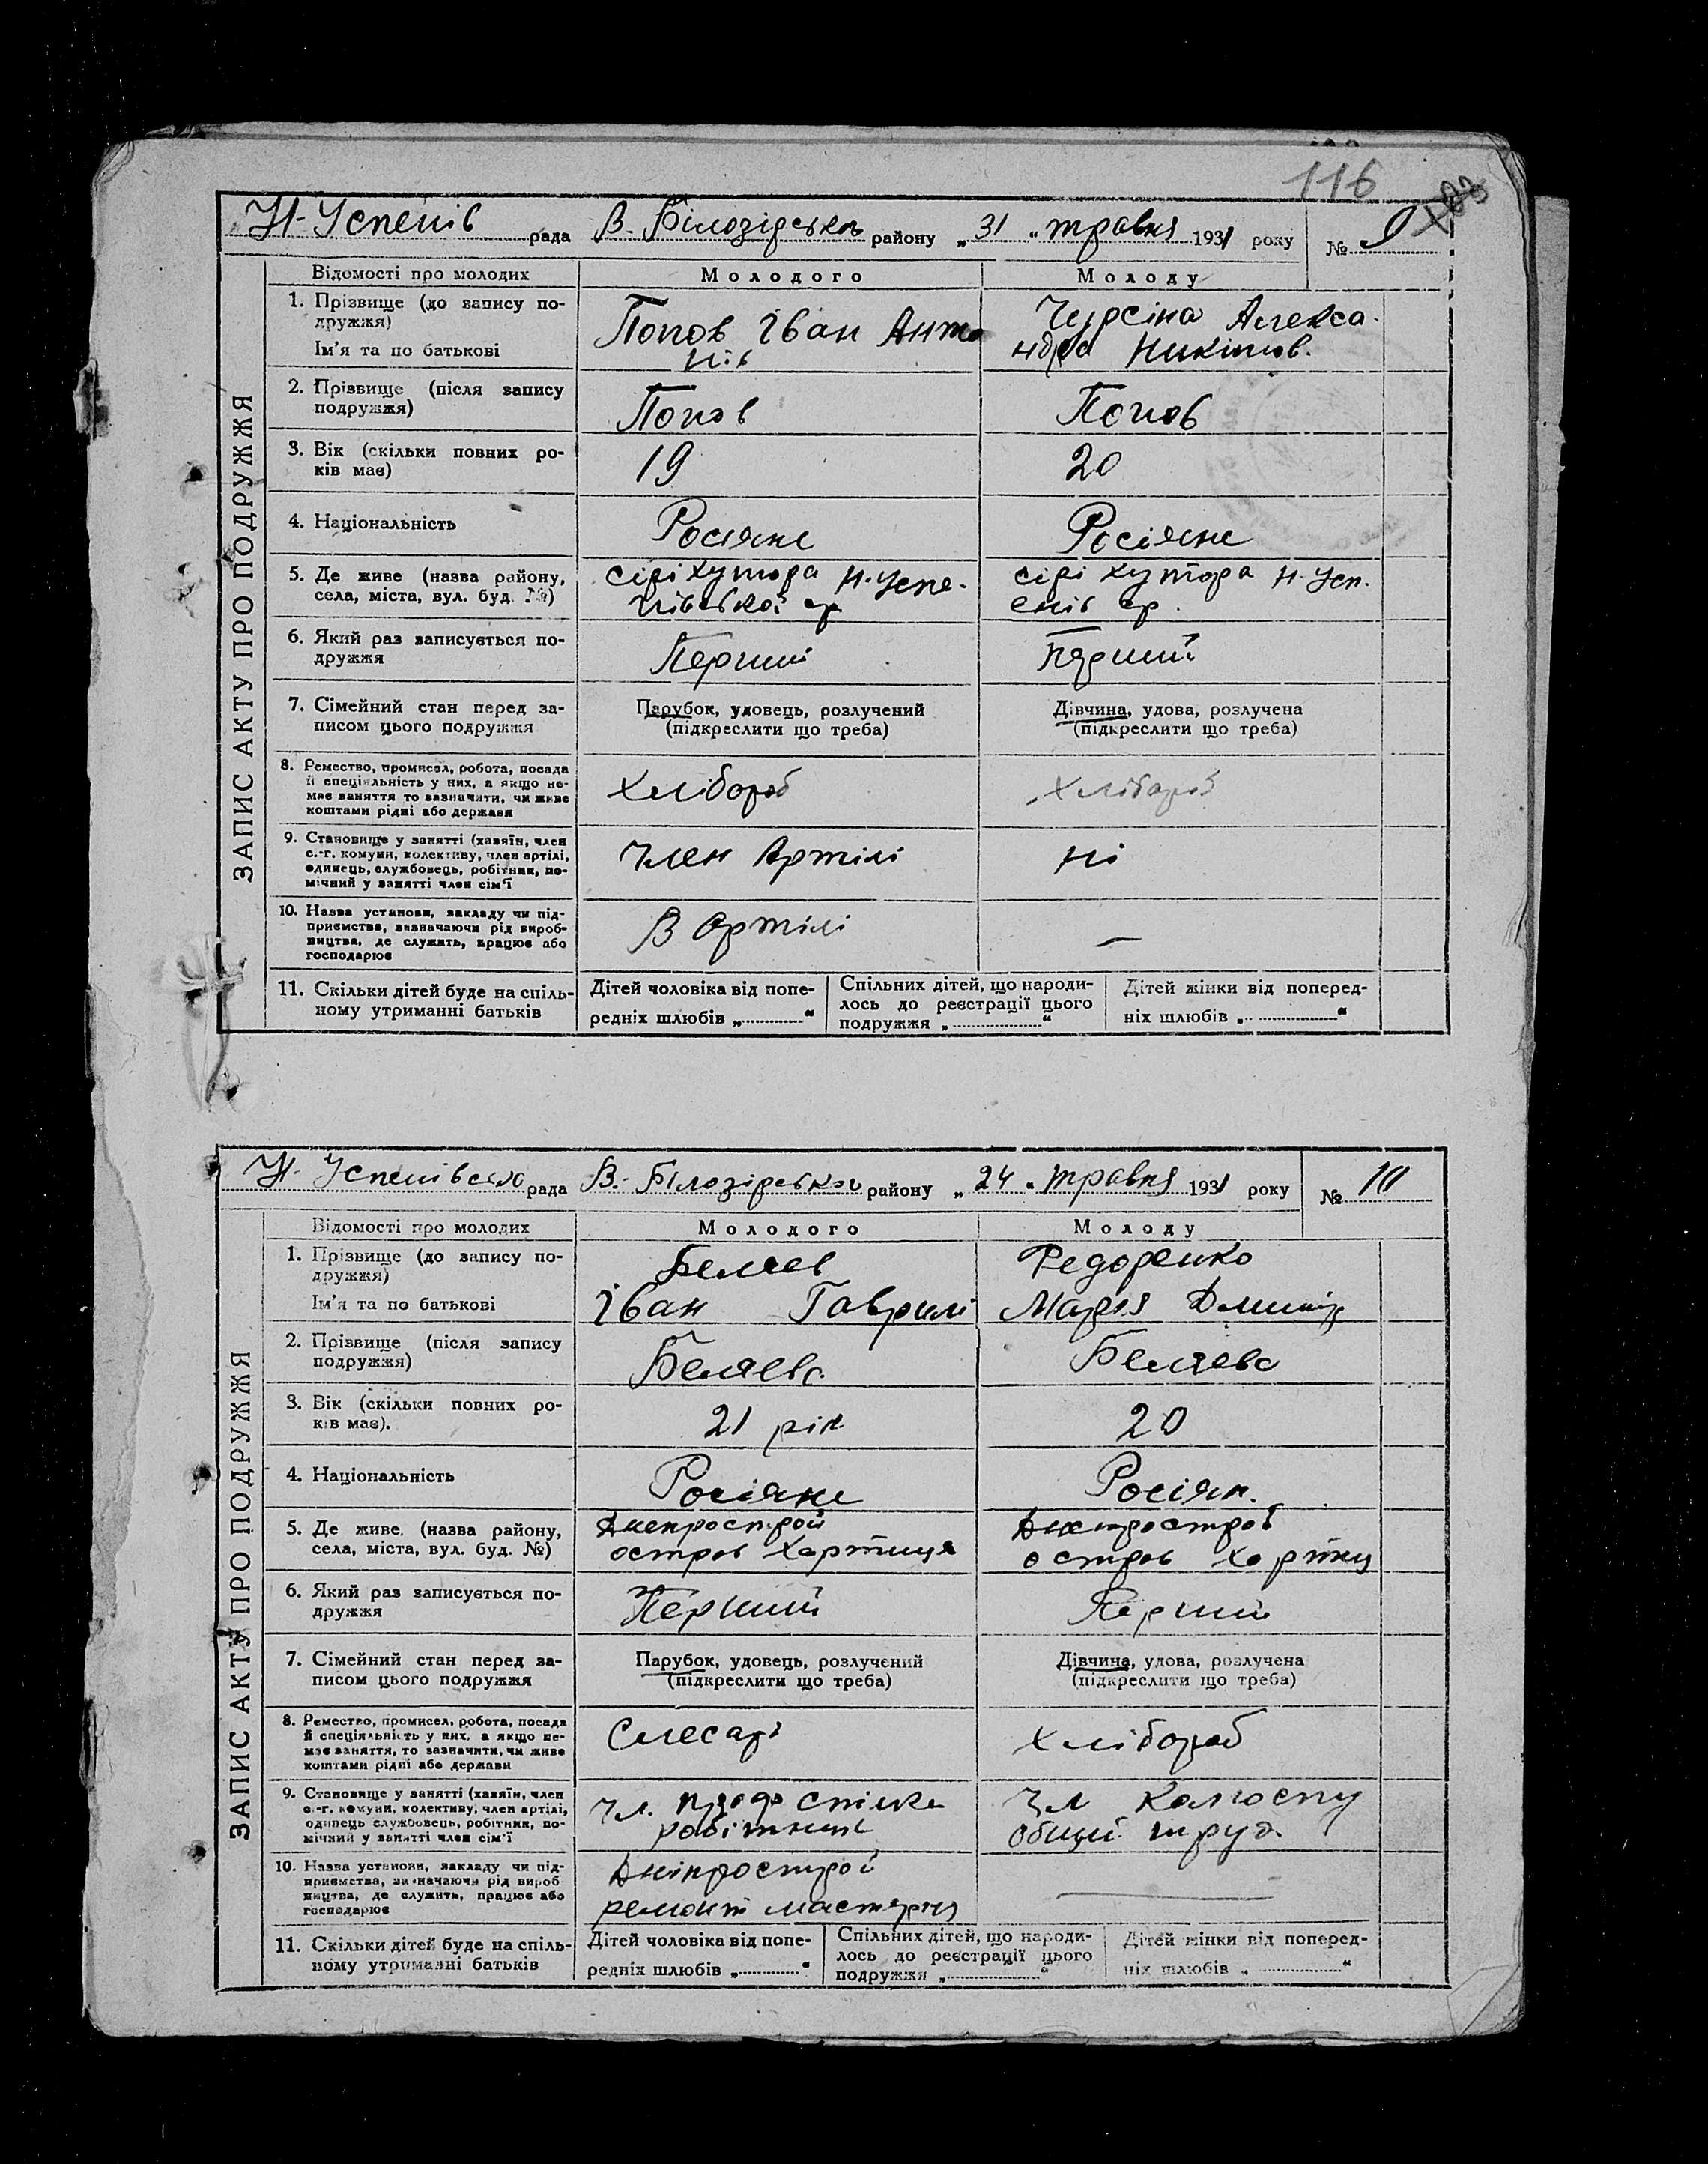 116
Н-Успенів рада В.-Білозірсько району „31“ травня 1931 року № 9
ЗАПИС АКТУ ПРО ПОДРУЖЖЯ
Відомості про молодих Молодого Молоду
1. Прізвище (до запису по-
дружжя)
Ім'я та по батькові
Попов Іван Анто
нів
Чурсіна Алекса-
ндра Никітов.
2. Прізвище (після запису
подружжя)
Попов
Попов
3. Вік (скільки повних ро-
ків має)
19
20
4. Національність
Росіяне
Росіяне
5. Де живе (назва району,
села, міста, вул. буд. №)
сірі хутора Н-Успе-
нівської ср
сірі хутора Н-Усп.
енів ср.
6. Який раз записується по-
дружжя
Перший
Перший
7. Сімейний стан перед за-
писом цього подружжя
Парубок, удовець, розлучений
(підкреслити що треба)
Дівчина, удова, розлучена
(підкреслити що треба)
8. Ремество, промисел, робота, посада
й спеціяльність у них, а якщо не-
має заняття то зазначити, чи живе
коштами рідні або держави
Хлібороб
Хлібороб
9. Становище у занятті (хазяїн, член
с.-г. комуни, колективу, член артілі,
одинець, службовець, робітник, по-
мічний у занятті член сім'ї
Член Артілі
Ні
10. Назва установи, закладу чи під-
приємства, зазначаючи рід вироб-
ництва, де служить, працює або
господарює
В Артілі
—
11. Скільки дітей буде на спіль-
ному утриманні батьків
Дітей чоловіка від попе-
редніх шлюбів „ “
Спільних дітей, що народи-
лось до реєстрації цього
подружжя „ “
Дітей жінки від поперед-
ніх шлюбів „ “
Н-Успенівсько рада В.-Білозірсько району „24“ травня 1931 року № 10
ЗАПИС АКТУ ПРО ПОДРУЖЖЯ
Відомості про молодих Молодого Молоду
1. Прізвище (до запису по-
дружжя)
Ім'я та по батькові
Беляев
Іван Гаврилі
Федоренко
Марія Дмитр
2. Прізвище (після запису
подружжя)
Беляева
Беляева
3. Вік (скільки повних ро-
ків має).
21 рік
20
4. Національність
Росіяне
Росіян.
5. Де живе. (назва району,
села, міста, вул. буд. №)
Днепрострой
остров Хортиця
Днепрострой
остров Хортиц
6. Який раз записується по-
дружжя
Перший
Перший
7. Сімейний стан перед за-
писом цього подружжя
Парубок, удовець, розлучений
(підкреслити що треба)
Дівчина, удова, розлучена
(підкреслити що треба)
8. Ремество, промисел, робота, посада
й спеціяльність у них, а якщо не-
має заняття, то зазначити, чи живе
коштами рідні або держави
Слесарь
Хлібороб
9. Становище у занятті (хазяїн, член
с.-г. комуни, колективу, член артілі,
одинець службовець, робітник, по-
мічний у занятті член сім'ї
Чл. спілке
робітник
Чл Колгоспу
общий труд.
10. Назва установи, закладу чи під-
приємства, зазначаючи рід вироб-
ництва, де служить, працює або
господарює
Дніпрострой
ремонт мастерня
—
11. Скільки дітей буде на спіль-
ному утриманні батьків
Дітей чоловіка від попе-
редніх шлюбів „ “
Спільних дітей, що народи-
лось до реєстрації цього
подружжя „ “
Дітей жінки від поперед-
ніх шлюбів „ “